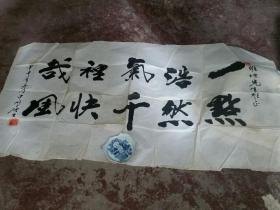 一點
浩然
氣千
裡快
哉風